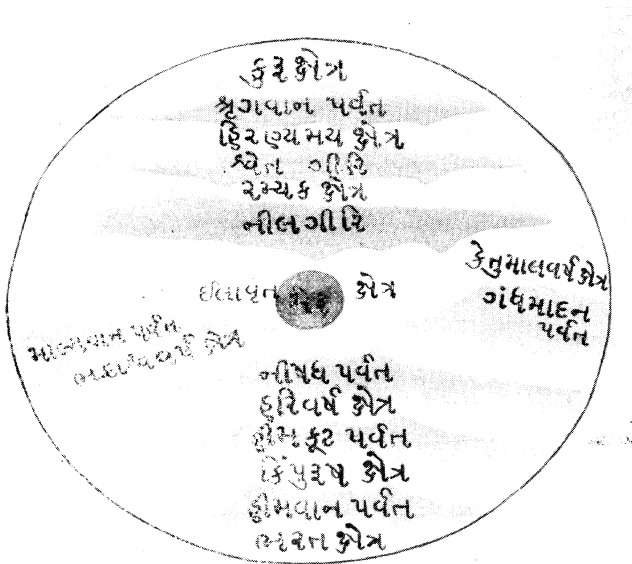 કુરુક્ષેત્ર
શ્રૃગવાન પર્વત
હિરણ્યમય ક્ષેત્ર
શ્વેત ગીરિ
રમ્યક ક્ષેત્ર
નીલગીરિ
કેતુમાલવર્ષ ક્ષેત્ર
ગંધમાદન
પર્વત
ઈલાવૃત મેરૂ ક્ષેત્ર
માલ્યવાન પર્વત
ભદ્રાશ્વવર્ષ ક્ષેત્ર
નીષધ પર્વત
હરિવર્ષ ક્ષેત્ર
હીમકૂટ પર્વત
કિંપુરૂષ ક્ષેત્ર
હીમવાન પર્વત
ભરત ક્ષેત્ર